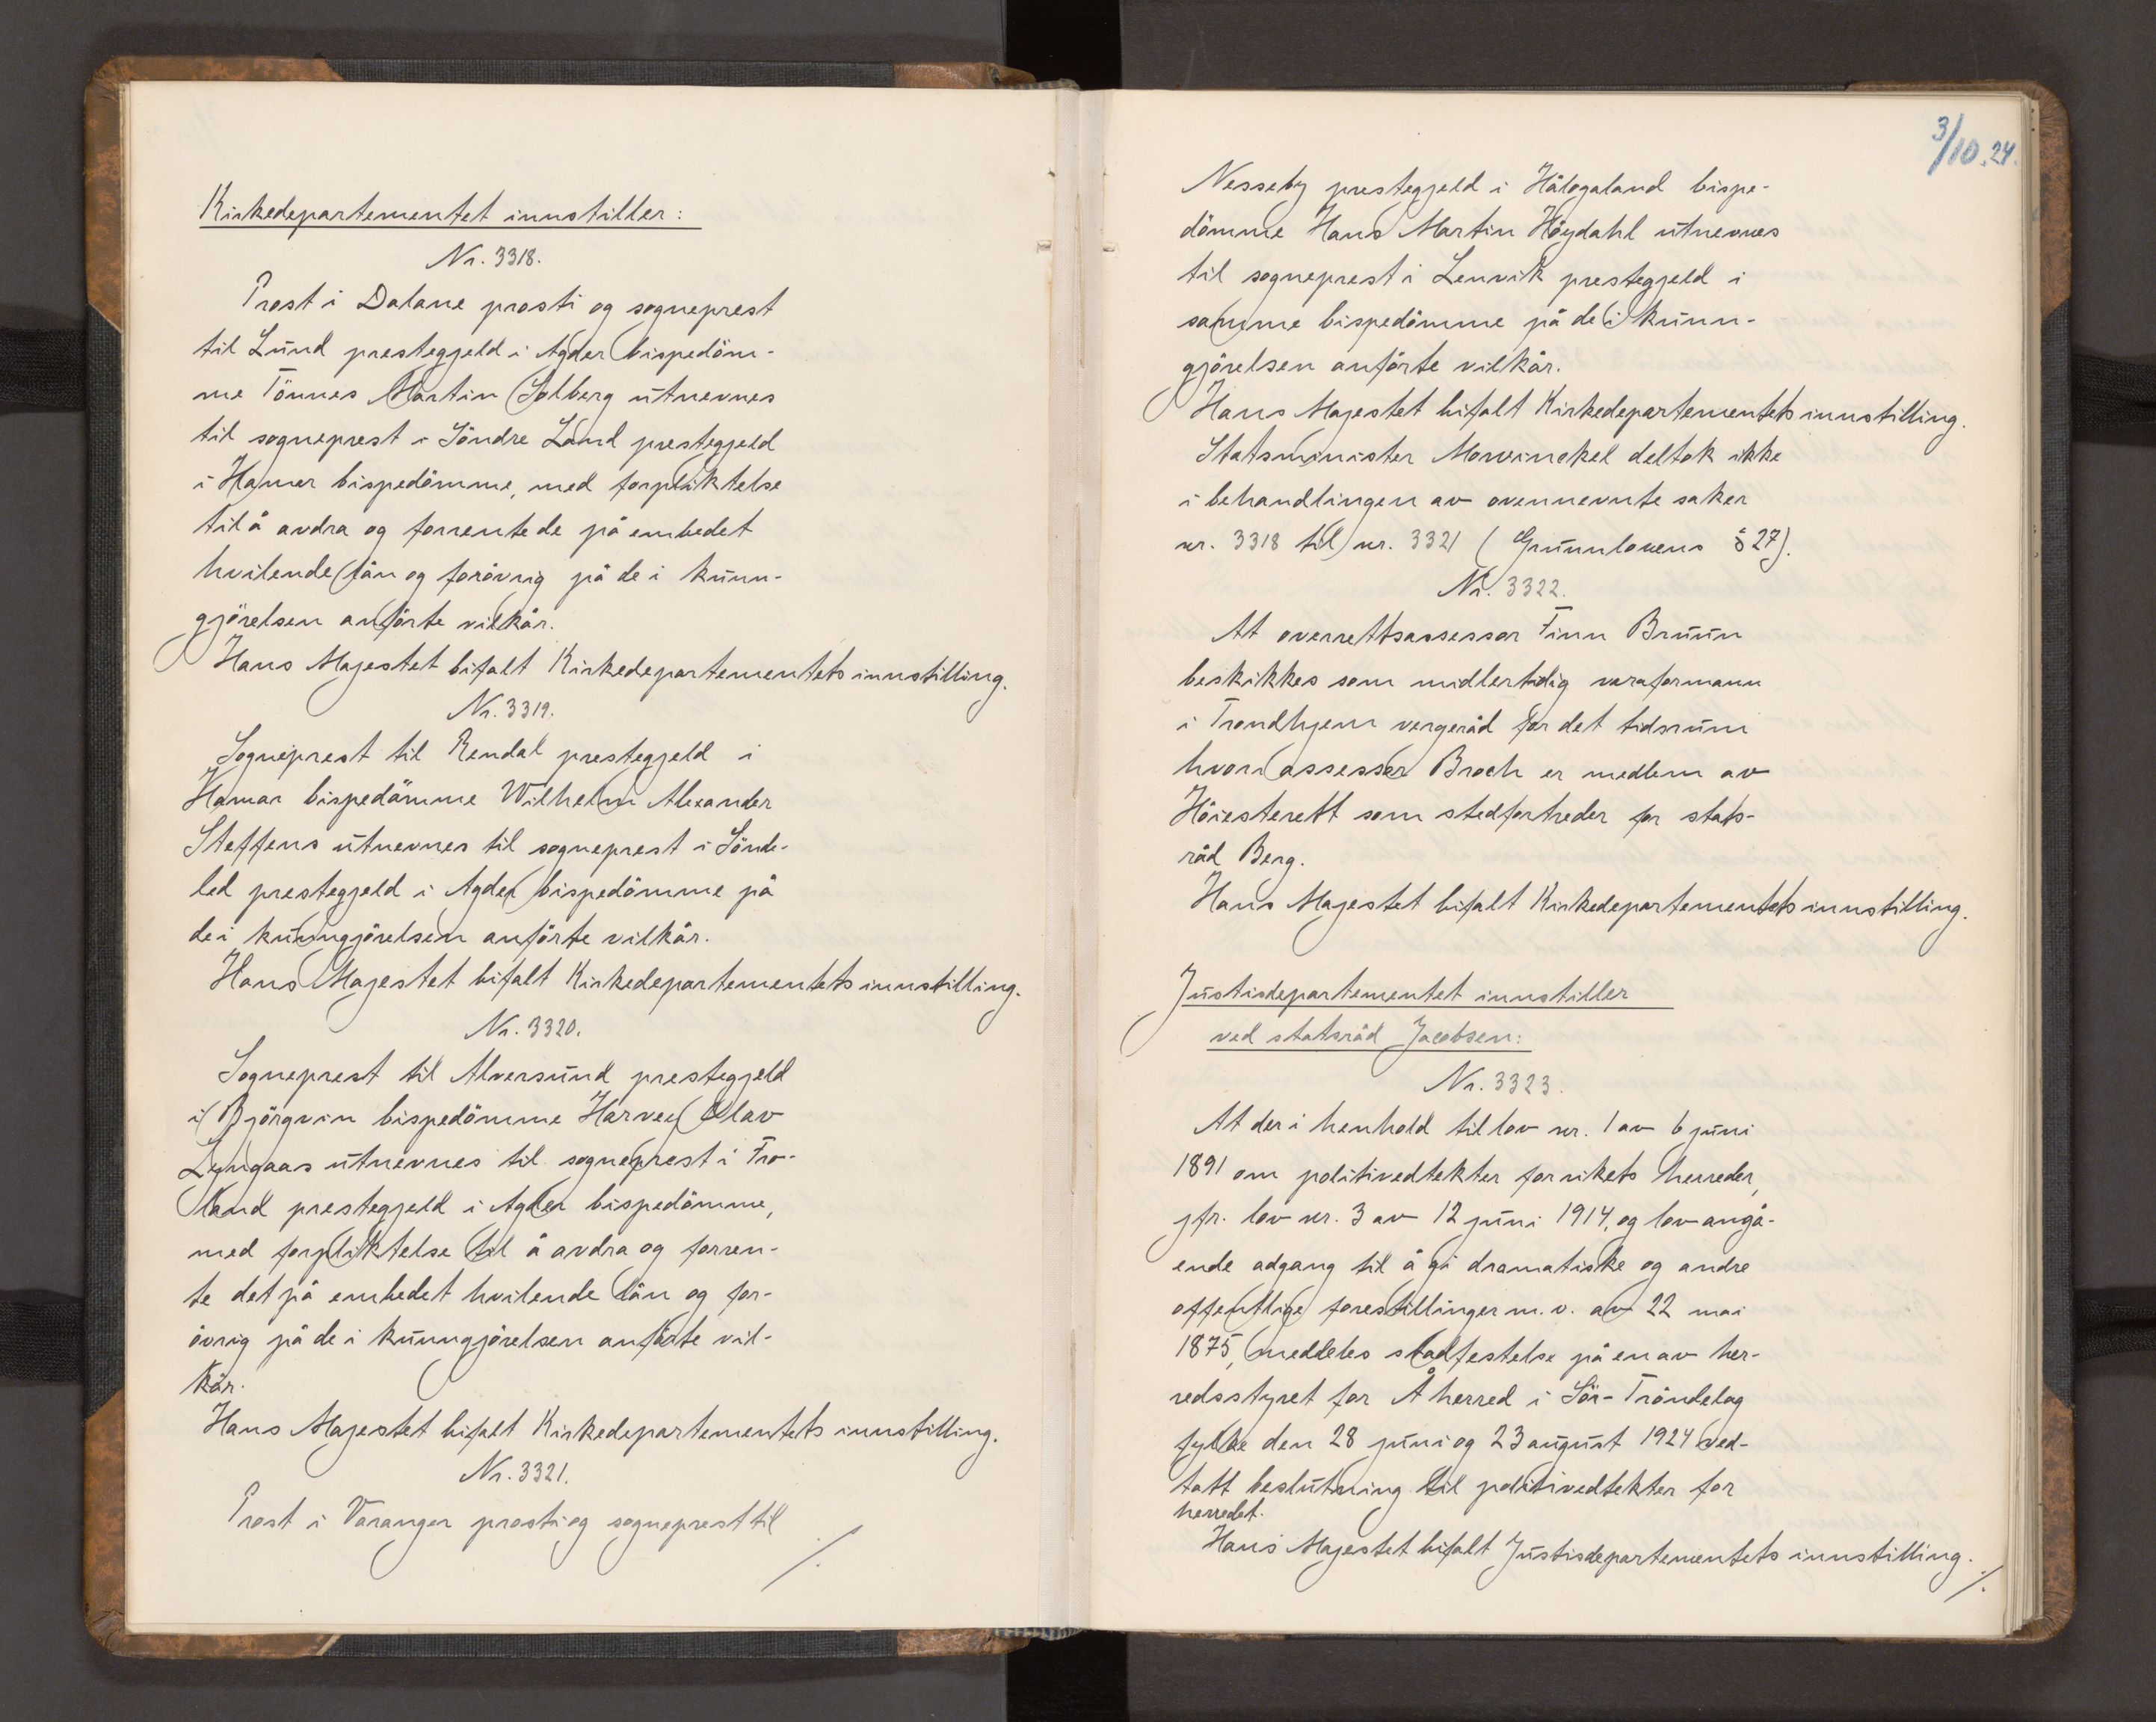 Kirkedepartementet innstiller:
Nr. 3318.
Prost i Dalane prosti og sogneprest
til Lund prestegjeld i Agder bispedöm-
me Tönnes Martin Solberg utnevnes
til sogneprest i Söndre Land prestegjeld
i Hamar bispedömme, med forpliktelse
til å avdra og forrente de på embedet
hvilende lån og forövrig på de i kunn-
gjörelsen anförte vilkår.
Hans Majestet bifalt Kirkedepartementets innstilling.
Nr. 3319.
Sogneprest til Rendal prestegjeld i
Hamar bispedömme Wilhelm Alexander
Steffens utnevnes til sogneprest i Sönde-
led prestegjeld i Agder bispedömme på
de i kunngjörelsen anförte vilkår.
Hans Majestet bifalt Kirkedepartementets innstilling.
Nr. 3320.
Sogneprest til Alversund prestegjeld
i Björgvin bispedömme Harvey Olav
Lyngaas utnevnes til sogneprest i Fro-
land prestegjeld i Agder bispedömme,
med forpliktelse til å avdra og forren-
te det på embedet hvilende lån og for-
övrig på de i kunngjörelsen anförte vil-
kår.
Hans Majestet bifalt Kirkedepartementets innstilling.
Nr. 3321.
Prost i Varanger prosti og sogneprest til
./.
3/10.24.
Nesseby prestegjeld i Hålogaland bispe-
dömme Hans Martin Höydahl utnevnes
til sogneprest i Lenvik prestegjeld i
samme bispedömme på de i kunn-
gjörelsen anförte vilkår.
Hans Majestet bifalt Kirkedepartementets innstilling.
Statsminister Mowinckel deltok ikke
i behandlingen av ovennevnte saker
nr. 3318 til nr. 3321 (Grunnlovens § 27).
Nr. 3322.
At overrettsassessor Finn Bruun
beskikkes som midlertidig varaformann
i Trondhjem vergeråd for det tidsrum
hvori assessor Broch er medlem av
Höiesterett som stedfortreder for stats-
råd Berg.
Hans Majestet bifalt Kirkedepartementets innstilling.
Justisdepartementet innstiller
ved statsråd Jacobsen:
Nr. 3323.
At der i henhold til lov nr. 1 av 6 juni
1891 om politivedtekter for rikets herreder,
jfr. lov nr. 3 av 12 juni 1914, og lov angå-
ende adgang til å gi dramatiske og andre
offentlige forestillinger m. v. av 22 mai
1875, meddeles stadfestelse på en av her-
redsstyret for Å herred i Sör-Tröndelag
fylke den 28 juni og 23 august 1924 ved-
tatt beslutning til politivedtekter for
herredet.
Hans Majestet bifalt Justisdepartementets innstilling.
./.